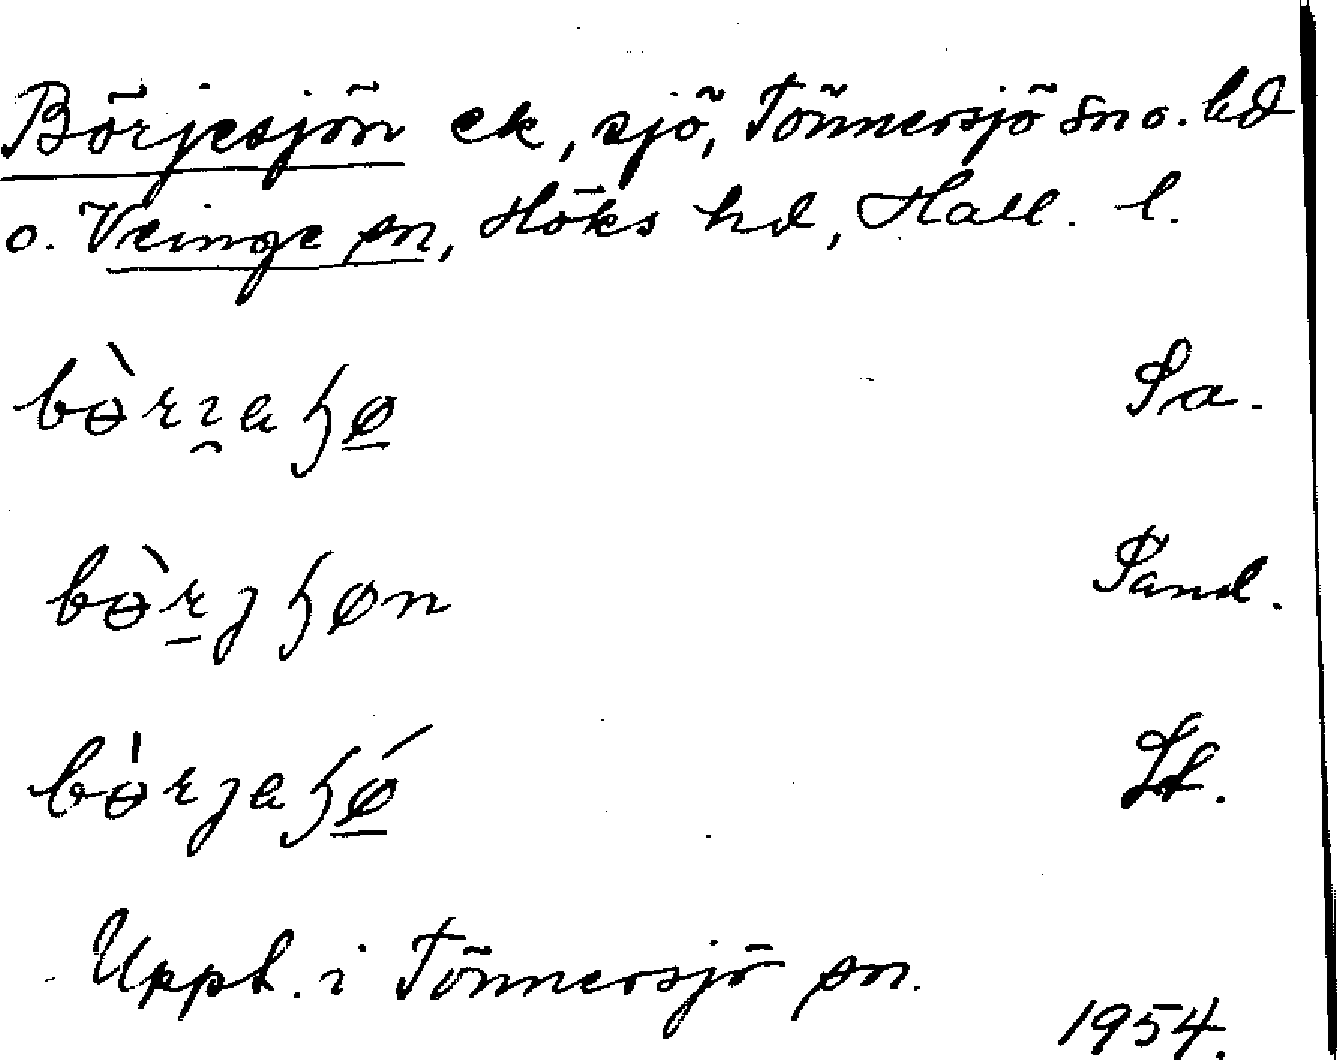 Börjesjön ek, sjö, Tönnersjö sn o. hd
o. Veinge sn, Höks hd, Hall. l.
bɵ̀rɪ̯aɧø̱ Sa.
bɵ̀r̠jɧøn Sand.
bɵ̍rjaɧǿ̱ Lt.
Uppt. i Tönnersjö sn.
1954.